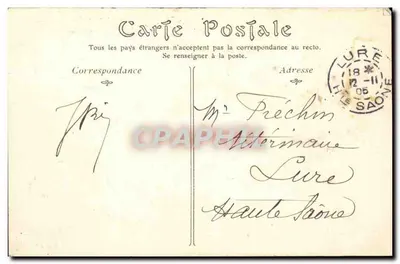 Carte Postale
Tous les pays étrangers n'acceptent pas la correspondance au recto.
Se renseigner à la poste.
Correspondance
Adresse
LURE
18 *
12 - 11
06
Hte SAÔNE
Mr Fréchin
Vétérinaire
Lure
Haute Saône
CPARAMA